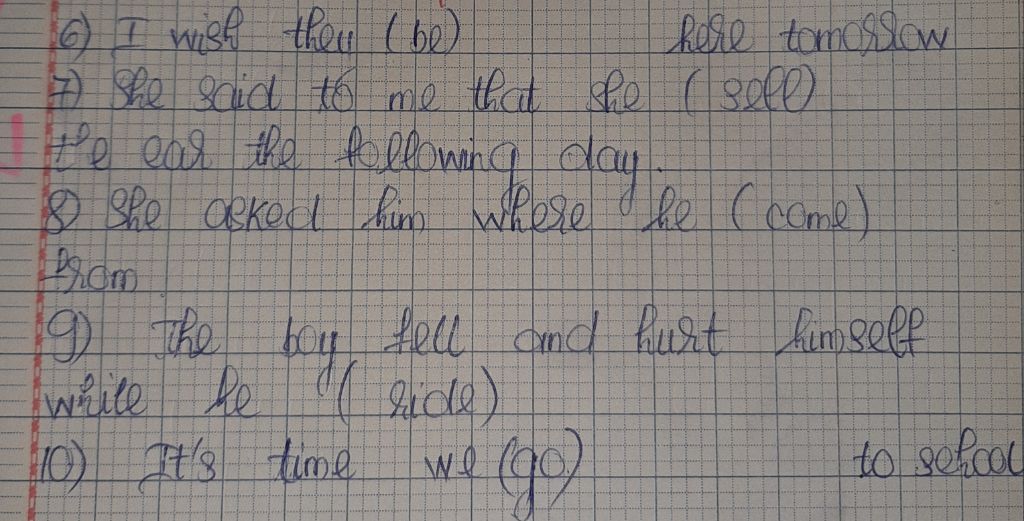 6) I wish they (be) here tomorrow
7) She said to me that she (sell)
the car the following day.
8) She asked him where he (come)
from
9) The boy fell and hurt himself
while he (ride)
10) It's time we (go) to school